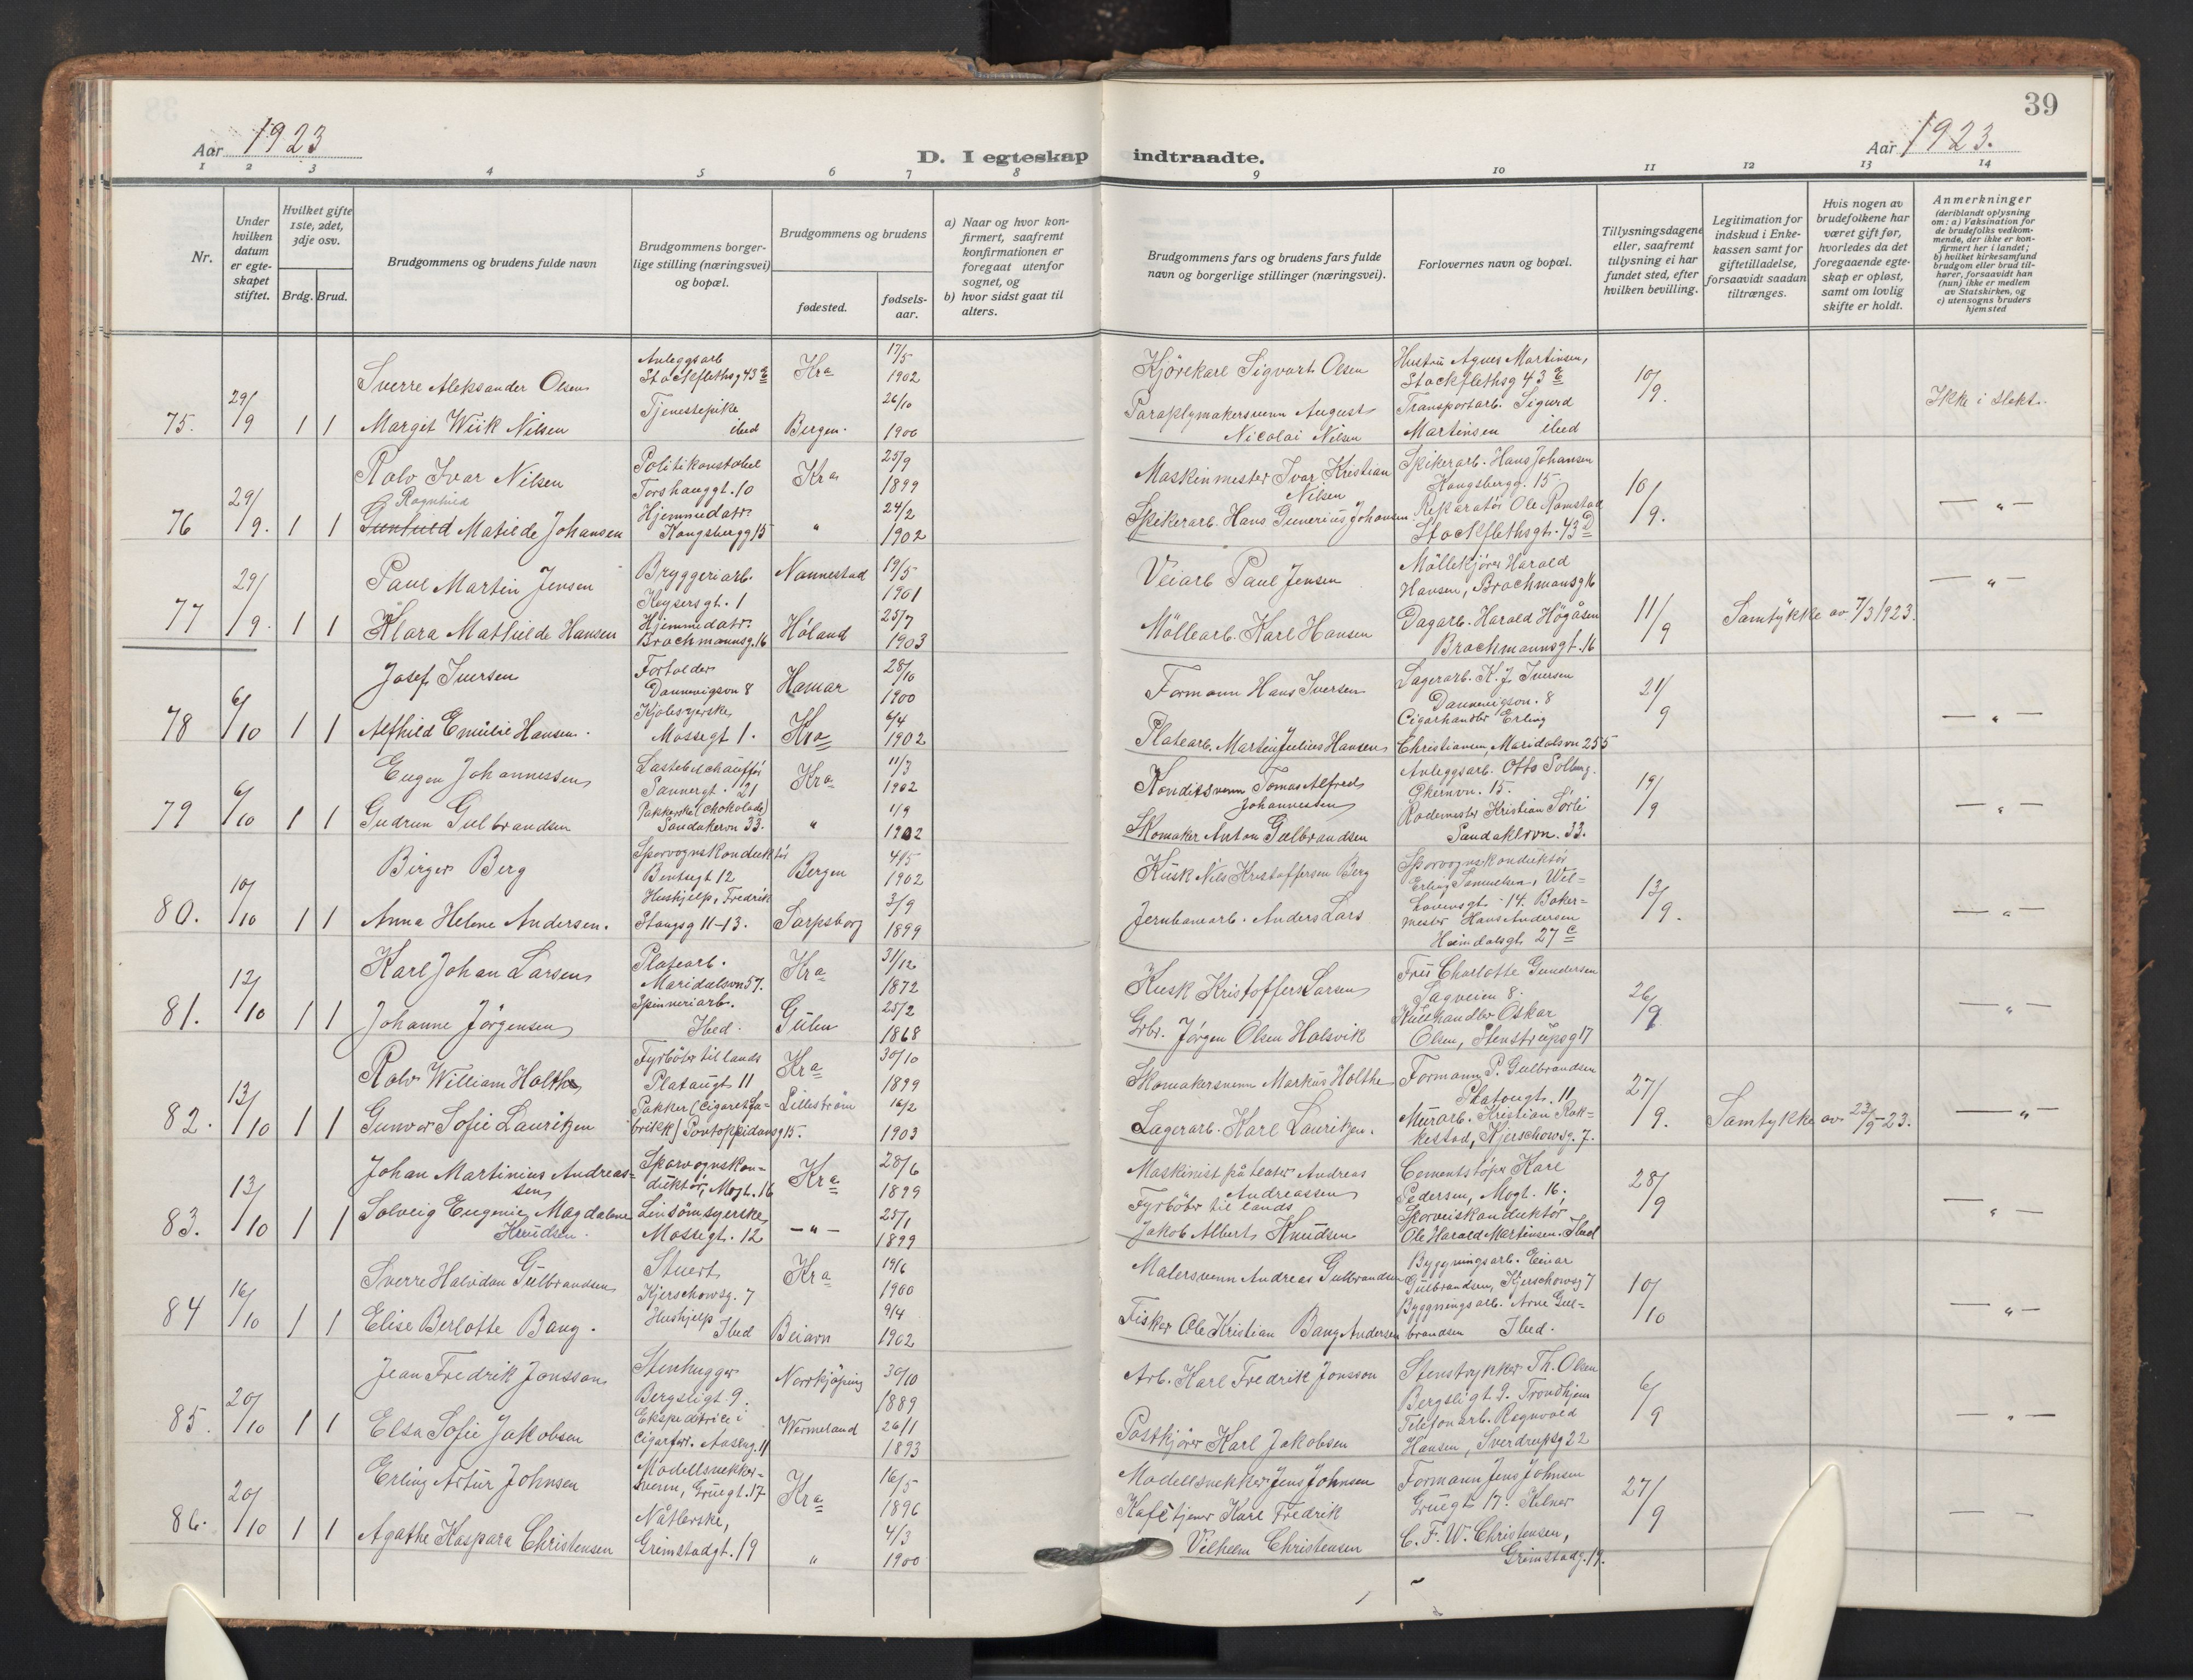 39
Aar 1923
D. I egteskap indtraadte.
Aar 1923.
1 2 3 4 5 6 7 8 9 10 11 12 13 14
Nr.
Under hvilken datum er egteskapet stiftet.
Hvilket gifte 1ste, 2det, 3dje osv.
Brdg. Brud.
Brudgommens og brudens fulde navn
Brudgommens borgerlige stilling (næringsvei) og bopæl.
Brudgommens og brudens
fødested.
fødselsaar.
a) Naar og hvor konfirmert, saafremt konfirmationen er foregaat utenfor sognet, og
b) hvor sidst gaat til alters.
Brudgommens fars og brudens fars fulde navn og borgerlige stillinger (næringsvei).
Forlovernes navn og bopæl.
Tillysningsdagene eller, saafremt tillysning ei har fundet sted, efter hvilken bevilling.
Legitimation for indskud i Enkekassen samt for giftetilladelse, forsaavidt saadan tiltrænges.
Hvis nogen av brudefolkene har været gift før, hvorledes da det foregaaende egteskap er opløst, samt om lovlig skifte er holdt.
Anmerkninger
(deriblandt oplysning om: a) Vaksination for de brudefolks vedkommende, der ikke er konfirmert her i landet; b) hvilket kirkesamfund brudgom eller brud tilhører, forsaavidt han (hun) ikke er medlem av Statskirken, og c) utensogns bruders hjemsted
75. 29/9 1 1
Sverre Aleksander Olsen
Anleggsarb Stockflethsg 43 E
Kra 17/5 1902
Kjørekarl Sigvart Olsen
Hustru Agnes Martinsen, Stockflethsg 43 E
10/9.
Ikke i slekt.
Margit Wiik Nilsen
Tjenestepike ibid
Bergen. 26/10 1900
Paraplymakersvenn August Nicolai Nilsen
Transportarb. Sigurd Martinsen ibid
76 29/9. 1 1
Rolv Ivar Nilsen
Politikonstabel Torshauggt. 10
Kra 25/9 1899
Maskinmester Ivar Kristian Nilsen
Spikerarb. Hans Johansen Kongsbergg. 15
10/9.
— " —
Ragnhild
Gunhild Matilde Johansen
Hjemmedatr. Kongsbergg 15
" 24/2 1902
Spikerarb. Hans Gunerius Johansen
Reparatør Ole Ramstad Stockflethsgt. 43 D
77 29/9. 1 1
Paul Martin Jensen
Bryggeriarb. Keysersgt. 1
Nannestad 19/5 1901
Veiarb Paul Jensen
Møllekjører Harald Hansen, Brochmansg 16
11/9
Samtykke av 7/3 1923.
— " —
Klara Mathilde Hansen
Hjemmedatr. Brochmannsg. 16
Høland 25/7 1903
Møllearb. Karl Hansen
Dagarb. Harald Högåsen Brochmannsgt. 16
78 6/10 1 1
Josef Iversen
Dannevigsvn 8
Hamar 28/10 1900
Formann Hans Iversen
Lagerarb. K. J. Iversen Dannevigsvn. 8
21/9
— " —
Alfhild Emilie Hansen.
Kjolesyerske Mossegt 1.
Kra 6/4 1902
Platearb. Martin Julius Hansen
Cigarhandler Erling Christiansen, Maridalsvn 255
79 6/10 1 1
Eugen Johannessen
Lastebilchauffør Sannergt. 21
Kra 11/3 1902
Konditsvenn Tomas Alfred Johannessen
Anleggsarb. Otto Solberg. Økernvn. 15.
19/9
— " —
Gudrun Gulbrandsen
Pakkerske (chokolade) Sandakervn 33.
" 1/9 1902
Skomaker Anton Gulbrandsen
Rodemester Kristian Sørli Sandakervn. 33.
80. 10/10 1 1
Birger Berg
Sporvognskonduktør Bentsegt 12
Bergen 4/5 1902
Kusk Nils Kristoffersen Berg
Sporvognskonduktør Erling Samuelsen, Wel- gt. 14.
13/9.
— " —
Anna Helene Andersen.
Hushjelp, Fredrik Stangsg 11–13.
Sarpsborg 3/9 1899
Jernbanearb. Anders Lars
Bakermester Hans Andersen Heimdalsgt. 27 c
81. 13/10 1 1
Karl Johan Larsen
Platearb. Maridalsvn 57.
Kra 31/12 1872
Kusk Kristoffer Larsen
Fru Charlotte Gundersen Sagveien 8.
26/9
— " —
Johanne Jørgensen
Spinneriarb. Ibid.
Gulen 25/2 1868
Grbr. Jørgen Olsen Halsvik
Kulhandler Oskar Olsen, Stenstrupsg 17
82. 13/10 1 1
Rolv William Holthe
Fyrbøter til lands Platougt 11
Kra 30/10 1899
Skomakersvenn Markus Holthe
Formann P. Gulbrandsen Platougt. 11
27/9.
Samtykke av 22/9-23.
— " —
Gunvor Sofie Lauritzen
Pakker (cigaretfabrikk) Pontoppidansg 15.
Lillestrøm 16/2 1903
Lagerarb. Karl Lauritzen.
Murarb. Kristian Rakkestad, Kjerschowsg. 7.
83. 13/10 1 1
Johan Martinius Andreassen
Sporvognskonduktør, Mogt. 16
Kra 28/6 1899
Maskinist på teater Andreas Andreassen
Cementstøper Karl Pedersen, Mogt. 16;
28/9
— " —
Solveig Eugenie Magdalene Knudsen.
Linsømsyerske Mossegt. 12
— " — 25/1 1899
Fyrbøter til lands Jakob Albert Knudsen
Sporveiskonduktør Ole Harald Martinsen. Ibid
84 16/10 1 1
Sverre Halvdan Gulbrandsen
Stuert Kjerschowsg. 7
Kra 19/6 1900
Malersvenn Andreas Gulbrandsen
Bygningsarb. Einar Gulbrandsen, Kjerschowsg 7
10/10
— " —
Elise Berlotte Bang.
Hushjelp Ibid
Beiarn 9/4 1902
Fisker Ole Kristian Bang Andersen
Byggningsarb. Arne Gulbrandsen Ibid.
85. 20/10 1 1
Jean Fredrik Jonsson
Stenhugger Bergsligt 9.
Norrkjøping 30/10 1889
Arb. Karl Fredrik Jonsson
Stentrykker Th. Olsen Bergsligt. 9. Trondhjem
6/9
— " —
Elsa Sofie Jakobsen
Ekspeditrice i cigarforr. Aaseng. 11
Wermeland 26/1 1893
Postkjører Karl Jakobsen
Telefonarb. Ragnvald Hansen, Sverdrupsg 22
86. 20/10 1 1
Erling Artur Johnsen
Modellsnekkersvenn, Gruegt. 17
Kra 16/5 1896
Modellsnekker Jens Johnsen
Formann Jens Johnsen Gruegt. 17.
27/9
— —
Agathe Kaspara Christensen
Nåtlerske, Grimstadgt. 19
" 4/3 1900
Kafétjener Karl Fredrik Vilhelm Christensen
Kelner C. F. W. Christensen, Grimstadg. 19.